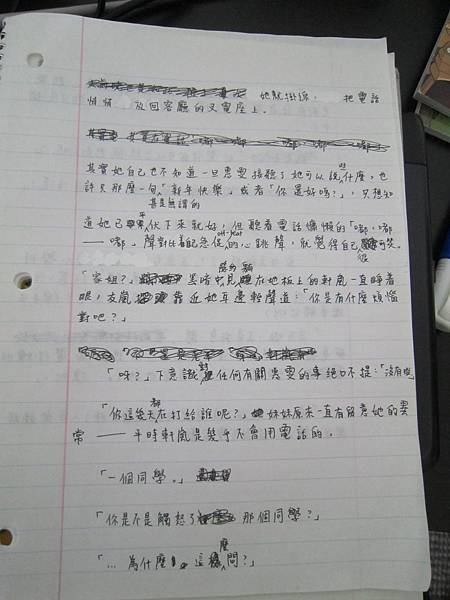 她就掛線， 把電話
悄悄 放回客廳的叉電座上。
其實她自己也不知道一旦惠雯接聽了她可以說些什麼，也
許只那麼一句「新年快樂」或者「你還好嗎？」，只想知
甚至無謂的
道她已平伏下來就好，但聽着電話慵懶的「嘟，嘟
——嘟」聲對任着記急促 off-beat 的心跳聲，就覺得自己可笑。
「家姐？」黑暗中見躺在地板上的軒嵐一直睜着
眼，友嵐靠近她耳邊輕聲道：「你是有什麼煩惱
對吧？」
「呀？」下意識對任何有關惠雯的事絕口不提：「沒有呢」
「你這幾天都在打給誰呢？」妹妹原來一直有留意她的異
常 —— 平時軒嵐是幾乎不會用電話的。
「一個同學。」
「你是不是觸怒了那個同學？」
「... 為什麼 這麼問？」